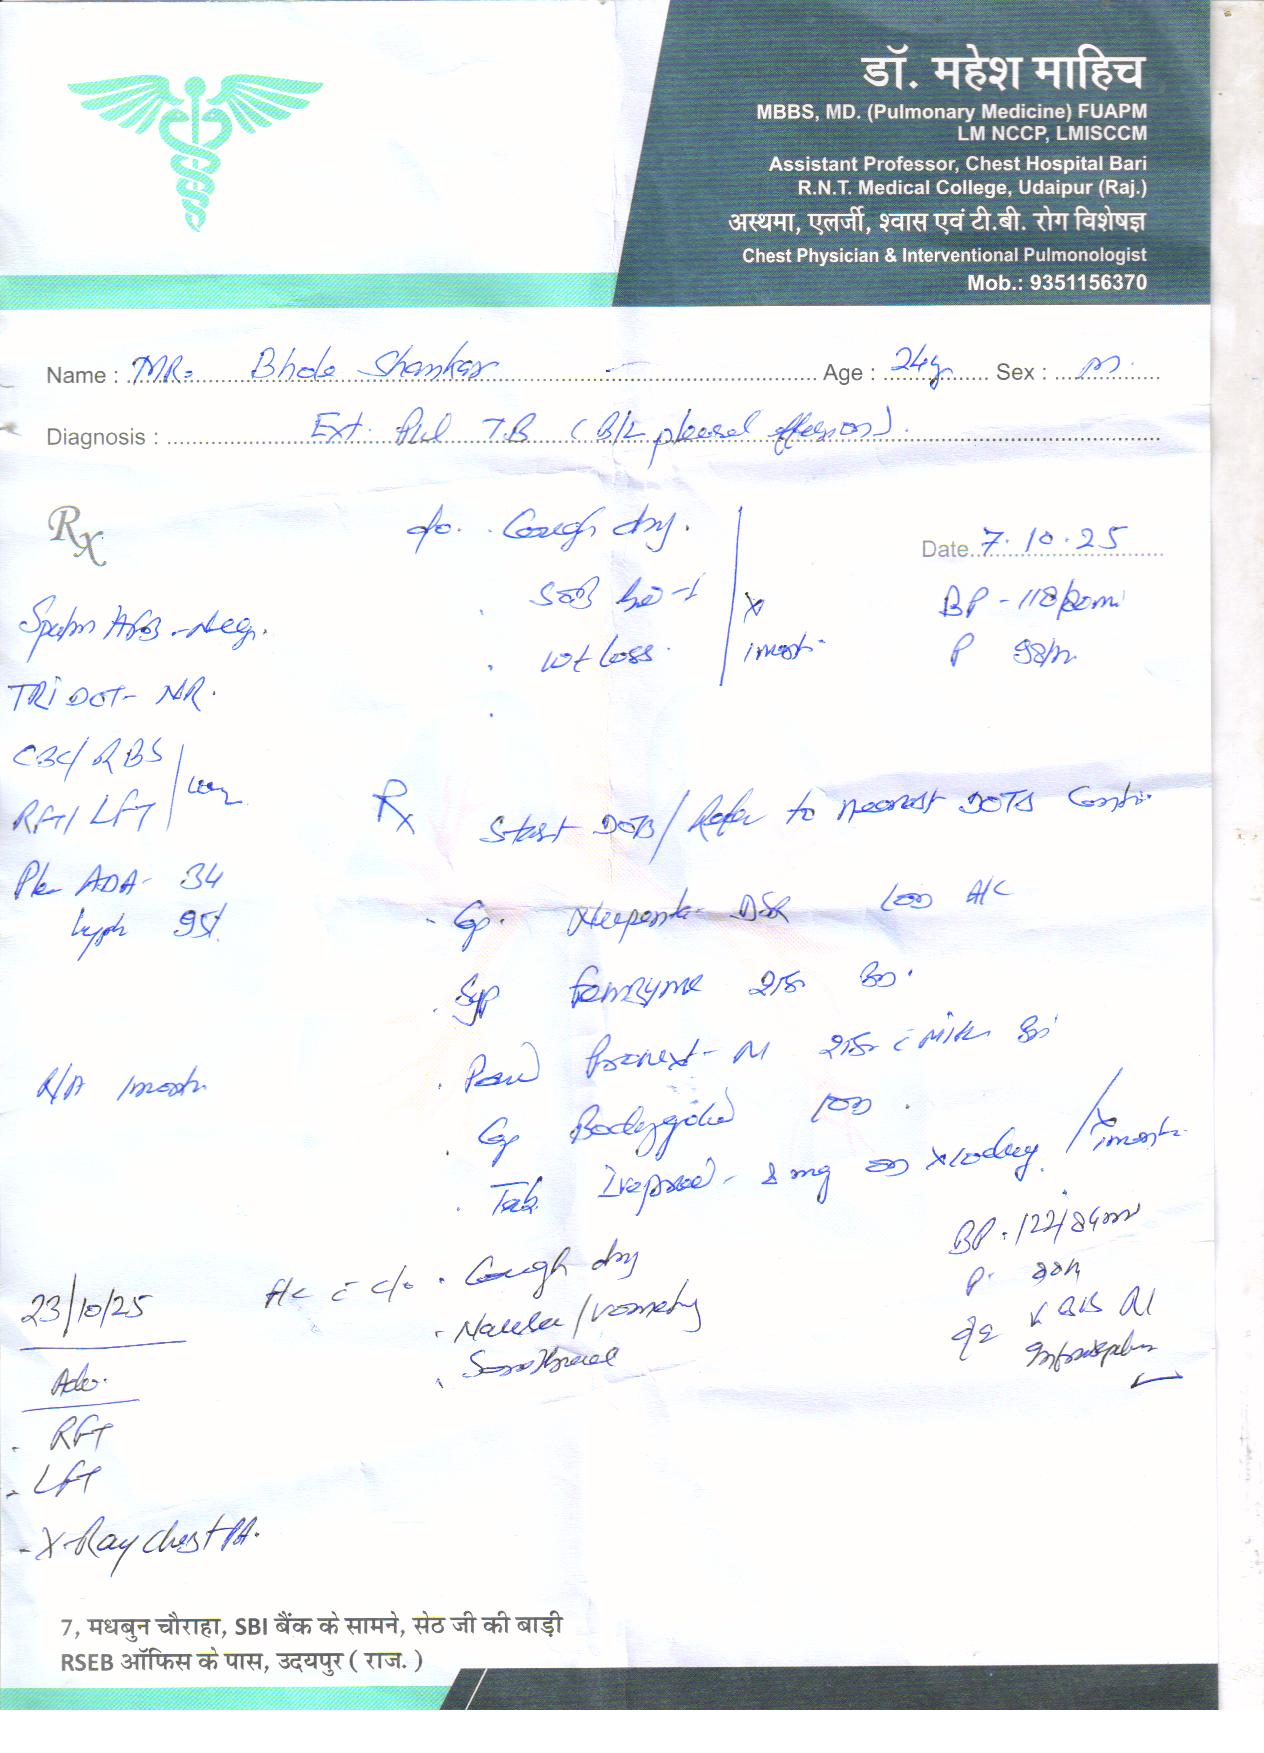 डॉ. महेश माहिच
MBBS, MD. (Pulmonary Medicine) FUAPM
LM NCCP, LMISCCM
Assistant Professor, Chest Hospital Bari
R.N.T. Medical College, Udaipur (Raj.)
अस्थमा, एलर्जी, श्वास एवं टी.बी. रोग विशेषज्ञ
Chest Physician & Interventional Pulmonologist
Mob.: 9351156370
Name : MR. Bhole Shankar Age : 24y Sex : M.
Diagnosis : Ext. Pul T.B (B/L pleural effusion).
Rx
c/o. Cough dry.
Date. 7.10.25
SOB
wt loss.
x 1 month
BP - 118/80
P 98/m
Sputm AFB - Neg.
TRI DOT - NR.
CBC/RBS
RFT/LFT
ADA - 34
Lymph 95%
R/A 1 month
Rx
Start DOTS/Refer to nearest DOTS Centre
Cp. DSR 1 OD A/C
Syp 2TSF BD.
Powd 2TSF c Milk BD
Cp Bodygold 1 OD.
Tab - 8 mg OD x 10 day
x 1 month
23/10/25
F/C c c/o. Cough dry
Nausea/vometing
Sore throat
BP. 122/84
P.
O/E
Adv.
RFT
LFT
X-Ray chest PA.
7, मधबुन चौराहा, SBI बैंक के सामने, सेठ जी की बाड़ी
RSEB ऑफिस के पास, उदयपुर ( राज. )